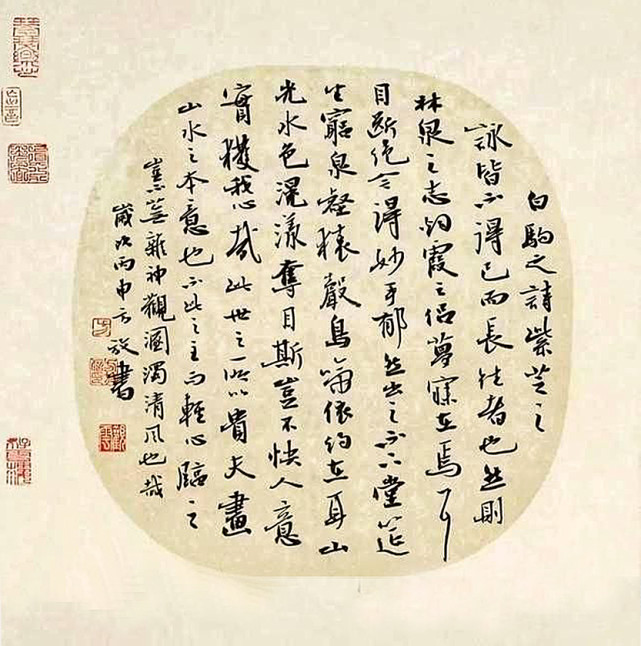 白駒之詩紫芝之
詠皆不得已而長往者也然則
林泉之志烟霞之侶夢寐在焉耳
目斷絕今得妙手郁然出之不下堂筵
坐窮泉壑猿聲鳥啼依約在耳山
光水色滉漾奪目斯豈不快人意
實獲我心哉此世之所以貴夫畫
山水之本意也不此之主而輕心臨之
豈不蕪雜神觀溷濁清風也哉
歲次丙申方放書